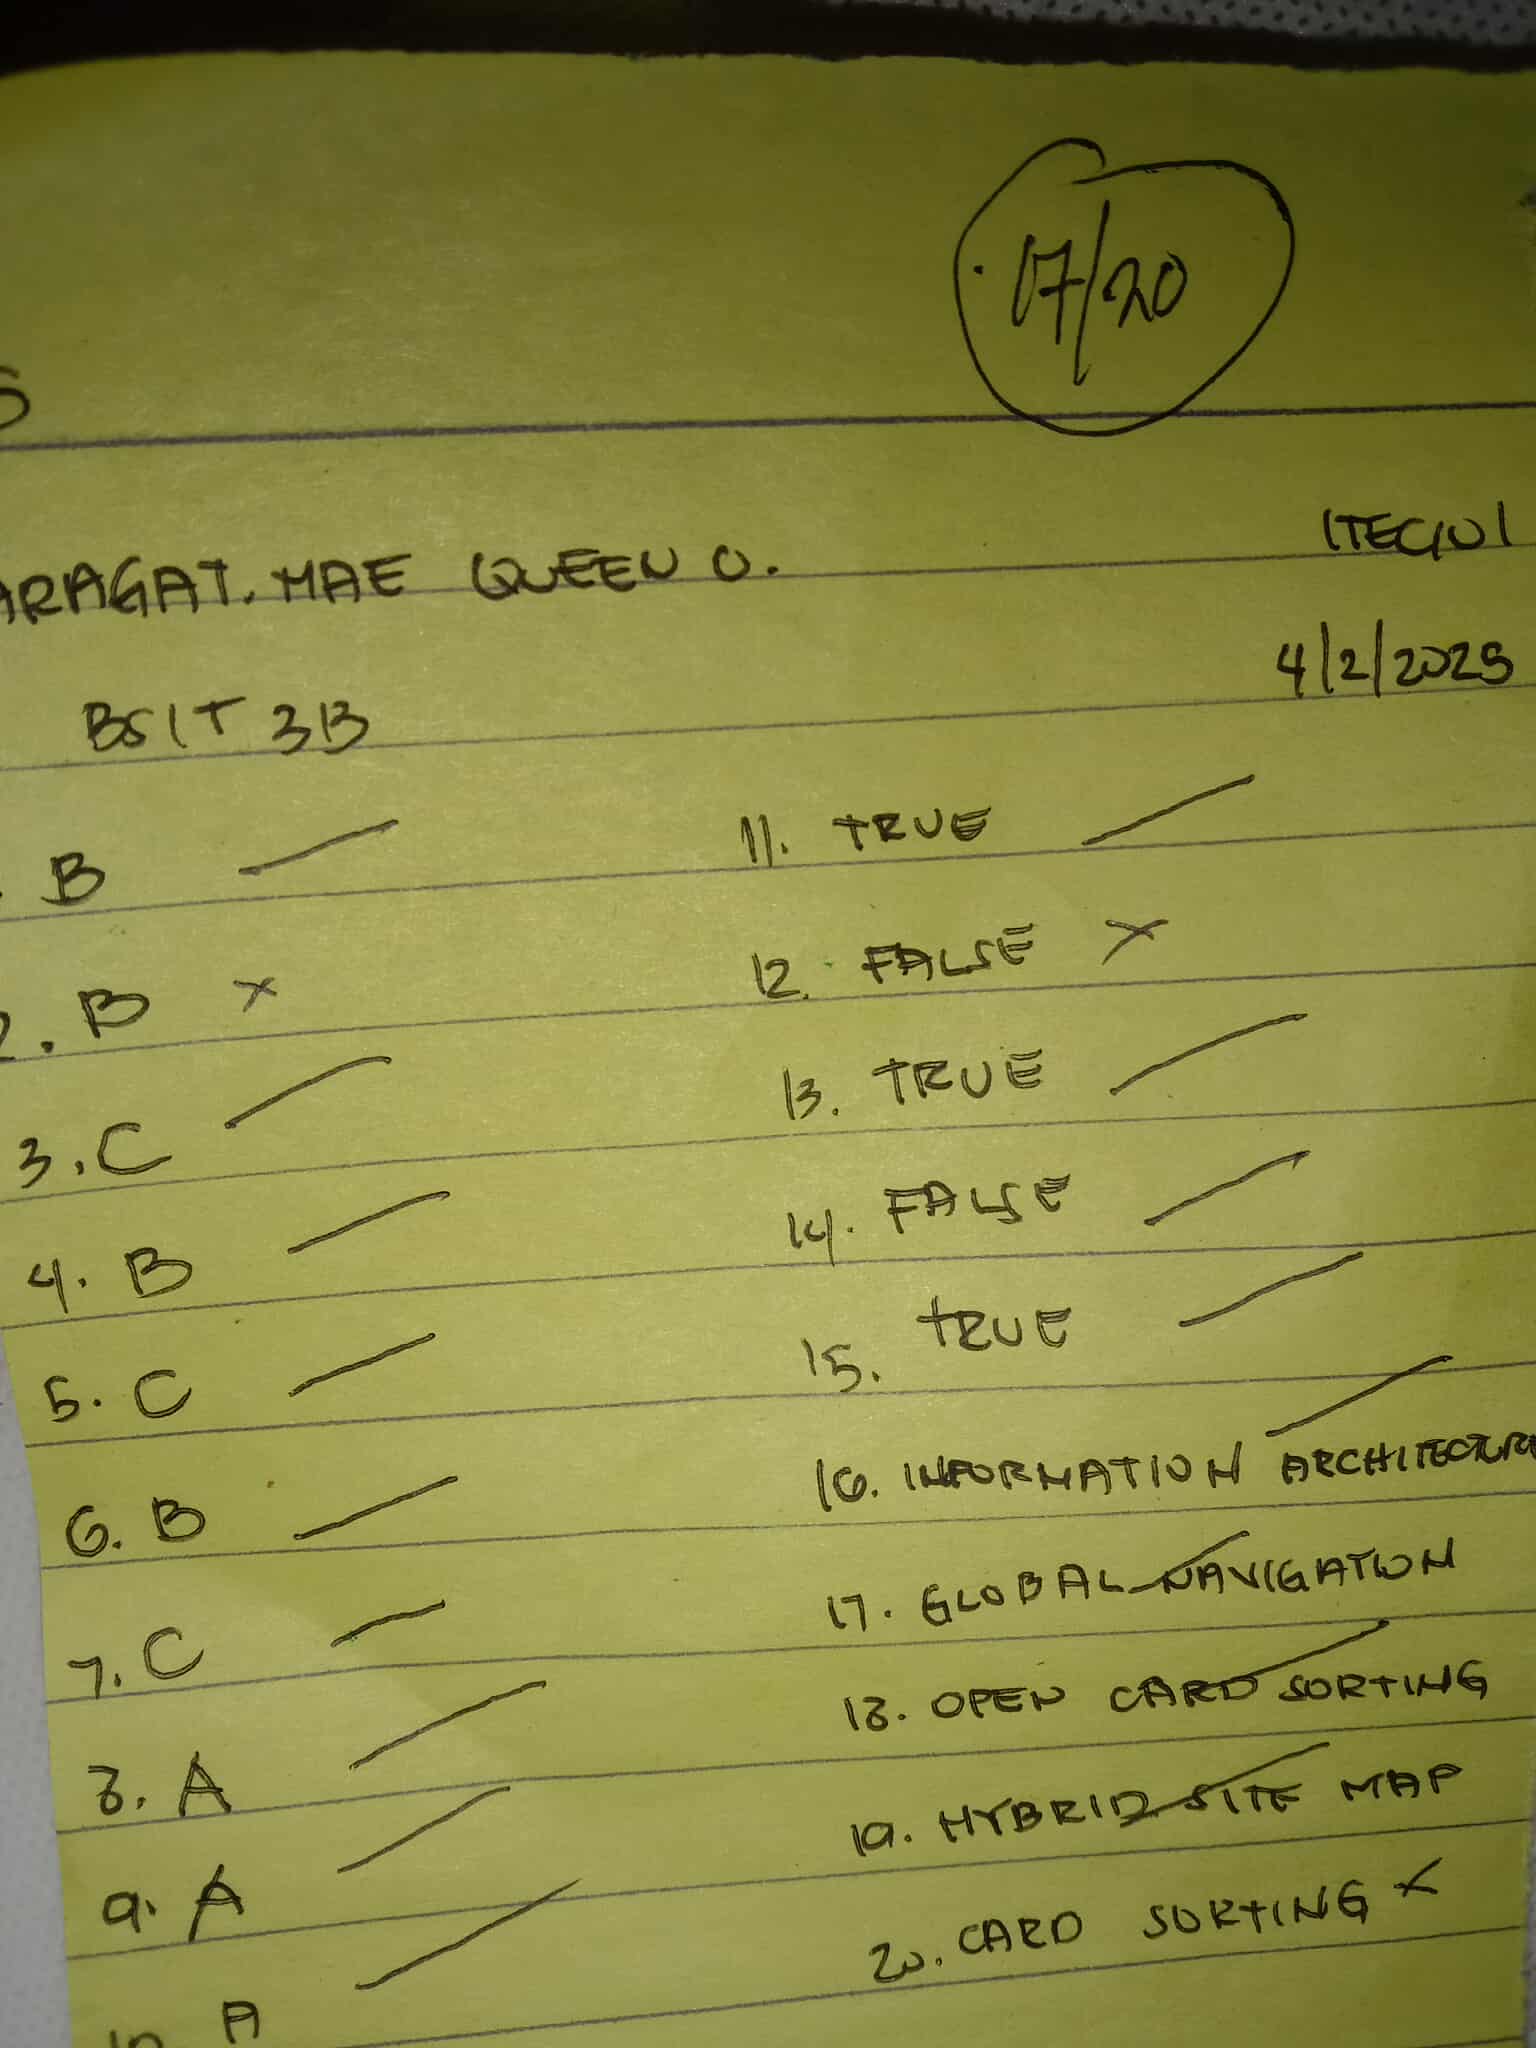 17/20
ARAGAT, MAE QUEEN O.
ITEC101
BSIT 3B
4/2/2025
B
2. B
3. C
4. B
5. C
6. B
7. C
8. A
9. A
10 A
11. TRUE
12. FALSE
13. TRUE
14. FALSE
15. TRUE
16. INFORMATION ARCHITECTURE
17. GLOBAL NAVIGATION
18. OPEN CARD SORTING
19. HYBRID SITE MAP
20. CARD SORTING